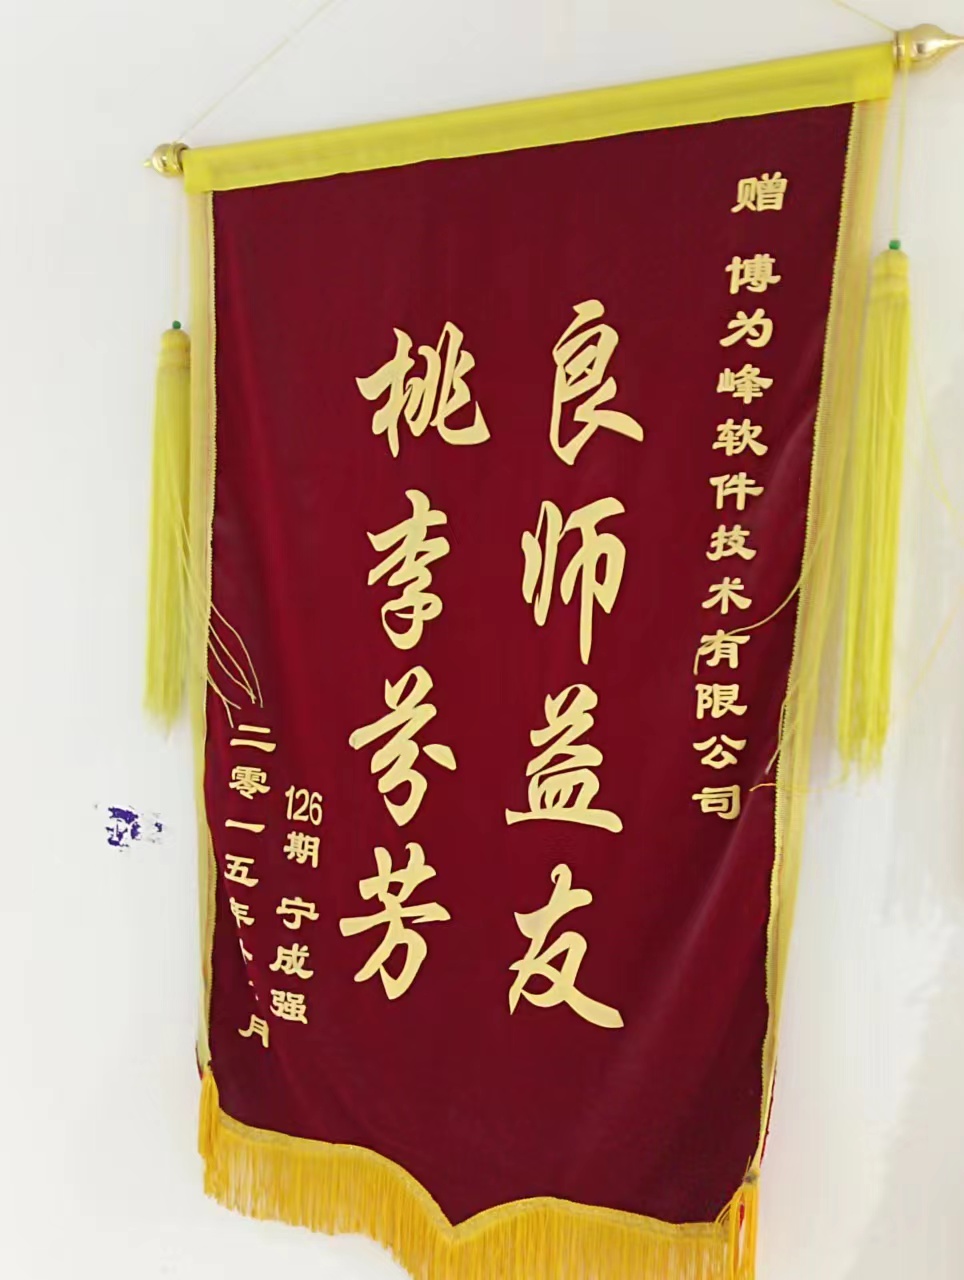 赠 博为峰软件技术有限公司
良师益友
桃李芬芳
126期 宁成强
二零一五年十 月